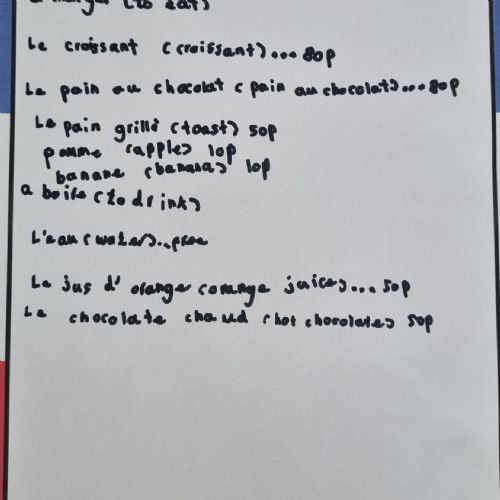 a manger (to eat)
Le croissant (croissant)... 80p
Le pain au chocolat (pain au chocolat)... 80p
Le pain grillé (toast) 50p
pomme (apple) 10p
banane (banana) 10p
a boire (to drink)
L'eau (water)... free
Le jus d'orange (orange juice)... 50p
Le chocolate chaud (hot chocolate) 50p